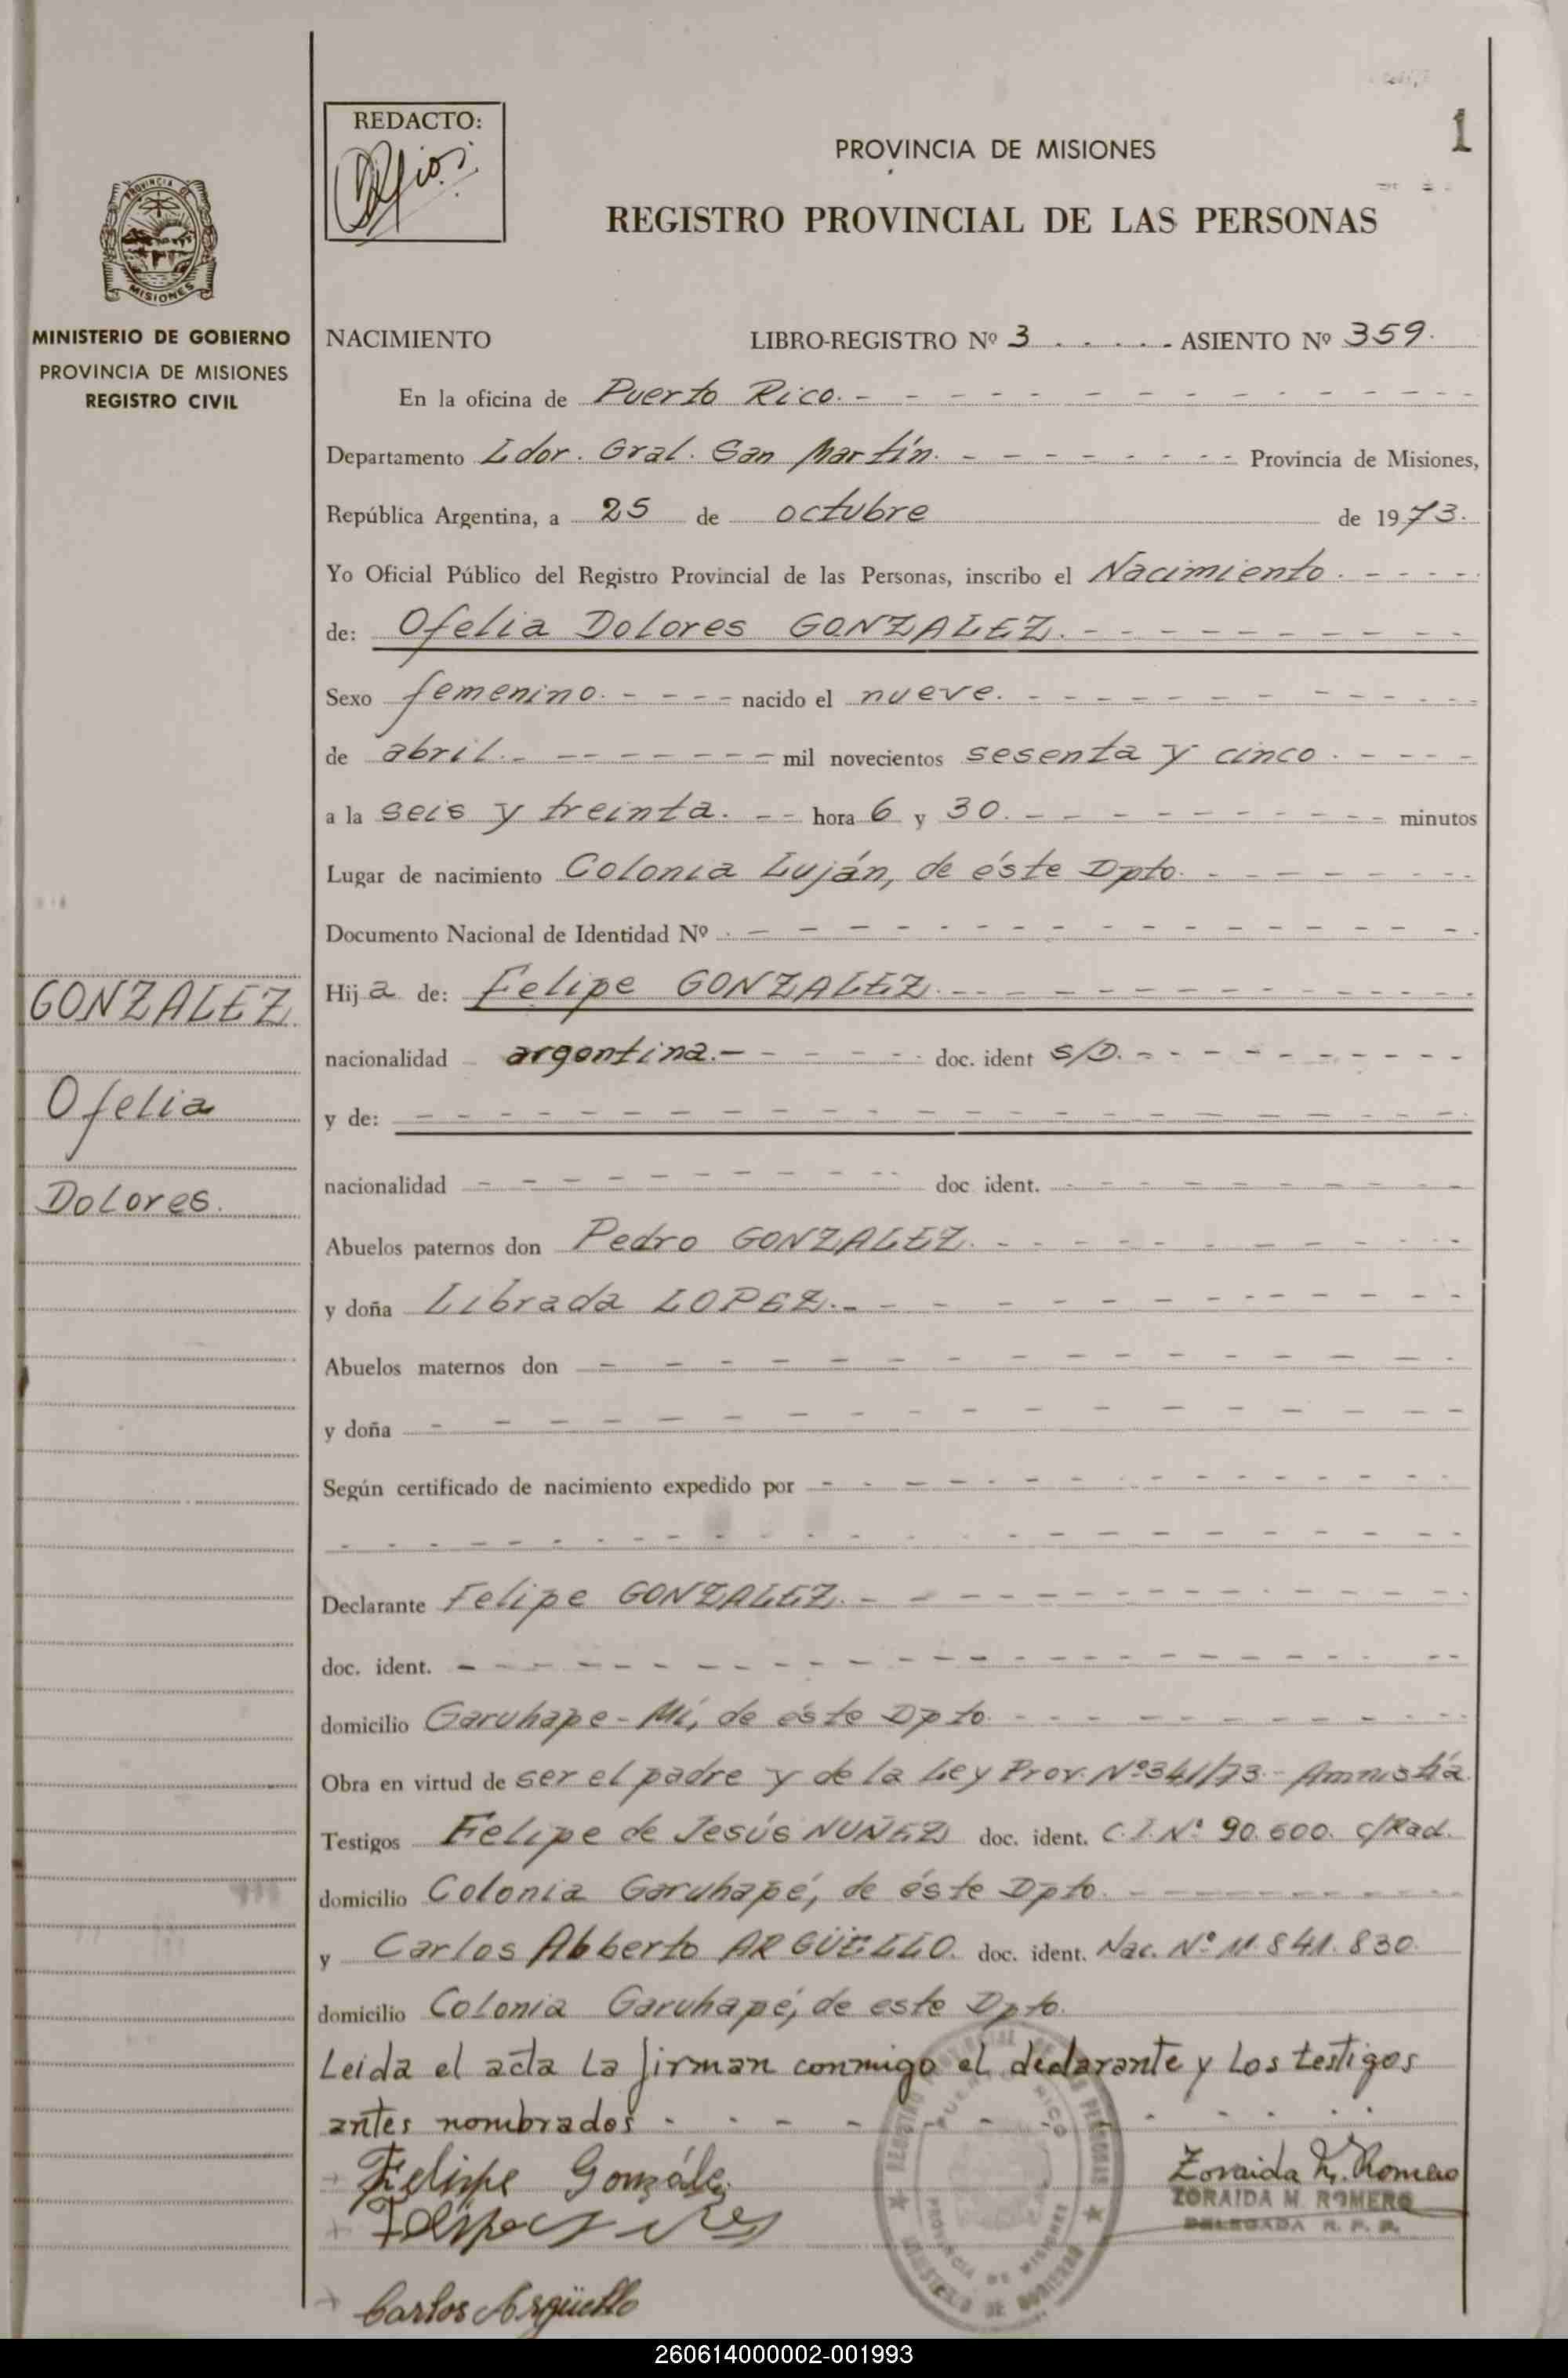 1
REDACTO:
PROVINCIA DE MISIONES
REGISTRO PROVINCIAL DE LAS PERSONAS
PROVINCIA DE
MISIONES
MINISTERIO DE GOBIERNO
PROVINCIA DE MISIONES
REGISTRO CIVIL
NACIMIENTO LIBRO-REGISTRO Nº 3 - - - - - ASIENTO Nº 359.
En la oficina de Puerto Rico. - - - - - - - - - - -
Departamento Ldor. Gral. San Martín. - - - - - - - - Provincia de Misiones,
República Argentina, a 25 de octubre de 1973.
Yo Oficial Público del Registro Provincial de las Personas, inscribo el Nacimiento. - - - -
de: Ofelia Dolores GONZALEZ. - - - - - - - - -
Sexo femenino. - - - - nacido el nueve. - - - - - - - - - - -
de abril. - - - - - - - mil novecientos sesenta y cinco. - - - -
a la seis y treinta. - - hora 6 y 30. - - - - - - - - - minutos
Lugar de nacimiento Colonia Luján, de éste Dpto. - - - - - - -
Documento Nacional de Identidad Nº - - - - - - - - - - - - - - - -
GONZALEZ
Ofelia
Dolores.
Hija de: Felipe GONZALEZ. - - - - - - - - - - - -
nacionalidad argentina. - - - - - - doc. ident S/D. - - - - - - - - -
y de: - - - - - - - - - - - - - - - - - - - -
nacionalidad - - - - - - - - - - doc ident. - - - - - - - - -
Abuelos paternos don Pedro GONZALEZ. - - - - - - - - - -
y doña Librada LOPEZ. - - - - - - - - - - - - -
Abuelos maternos don - - - - - - - - - - - - - - -
y doña - - - - - - - - - - - - - - - - -
Según certificado de nacimiento expedido por - - - - - - - - - - - - - -
- - - - - - - - - - - - - - - - - - - - - - -
Declarante Felipe GONZALEZ. - - - - - - - - - - - - - -
doc. ident. - - - - - - - - - - - - - - - - - - - - -
domicilio Garuhape-Mí, de éste Dpto. - - - - - - - - - -
Obra en virtud de ser el padre y de la Ley Prov. Nº341/73.- Amnistía.
Testigos Felipe de Jesús NUÑEZ doc. ident. C.I.Nº 90.600. c/Rad.
domicilio Colonia Garuhapé, de éste Dpto. - - - - - - - - -
y Carlos Abberto ARGÜELLO. doc. ident. Nac. Nº 11.841.830.
domicilio Colonia Garuhapé, de este Dpto.
Leida el acta la firman conmigo el declarante y los testigos
antes nombrados - - - - - - - - - - - -
Felipe González
Zoraida M. Romero
ZORAIDA M. ROMERO
DELEGADA R. P. P.
Carlos Argüello
REGISTRO PROVINCIAL DE LAS PERSONAS
PUERTO RICO
PROVINCIA DE MISIONES
MINISTERIO DE GOBIERNO
260614000002-001993